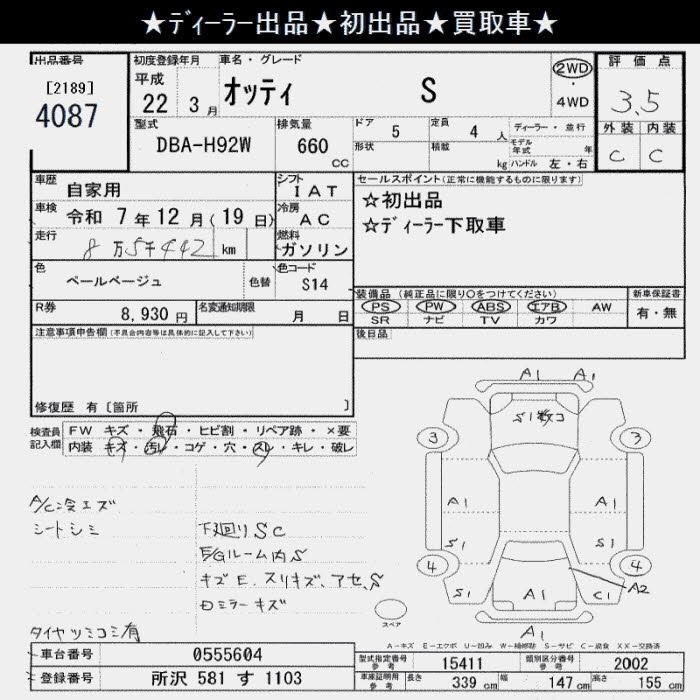 ★ディーラー出品★初出品★買取車★
出品番号
[2189]
4087
初度登録年月
平成
22 3月
車名・グレード
オッティ S
2WD
・
4WD
評価点
3.5
外装 内装
C C
型式
DBA-H92W
排気量
660 CC
ドア 5
形状
定員 4人
積載 kg
ディーラー・並行
モデル年式 年
ハンドル 左・右
車歴 自家用
車検 令和 7年12月(19日)
走行 8万5千442 km
シフト IAT
冷房 AC
燃料 ガソリン
色 ペールベージュ 色替
色コード S14
R券 8,930円
名変通知期限 月 日
セールスポイント(正常に機能するものに限ります)
☆初出品
☆ディーラー下取車
装備品(純正品に限り○をつけてください)
PS PW ABS エアB AW
SR ナビ TV カワ
新車保証書
有・無
後日品
注意事項申告欄(不具合内容等は具体的に記入して下さい)
修復歴 有〔箇所 〕
検査員記入欄
FW キズ・飛石・ヒビ割・リペア跡・×要
内装 キズ・汚レ・コゲ・穴・スレ・キレ・破レ
A/C冷エズ
シートシミ
下廻りSC
E/Gルーム内S
キズE、スリキズ、アセ、S
ミラーキズ
タイヤツミコミ有
A1 A1
S1
3 3
A1 A1
S1 S1
4 4
S1 A1 C1
A2
A1
スペア
A-キズ E-エクボ U-凹み W-補修跡 S-サビ C-腐食 XX-交換済
車台番号 0555604
登録番号 所沢 581 す 1103
型式指定番号 参考 15411
類別区分番号 参考 2002
車庫証明用 参考
長さ 339 cm
幅 147 cm
高さ 155 cm